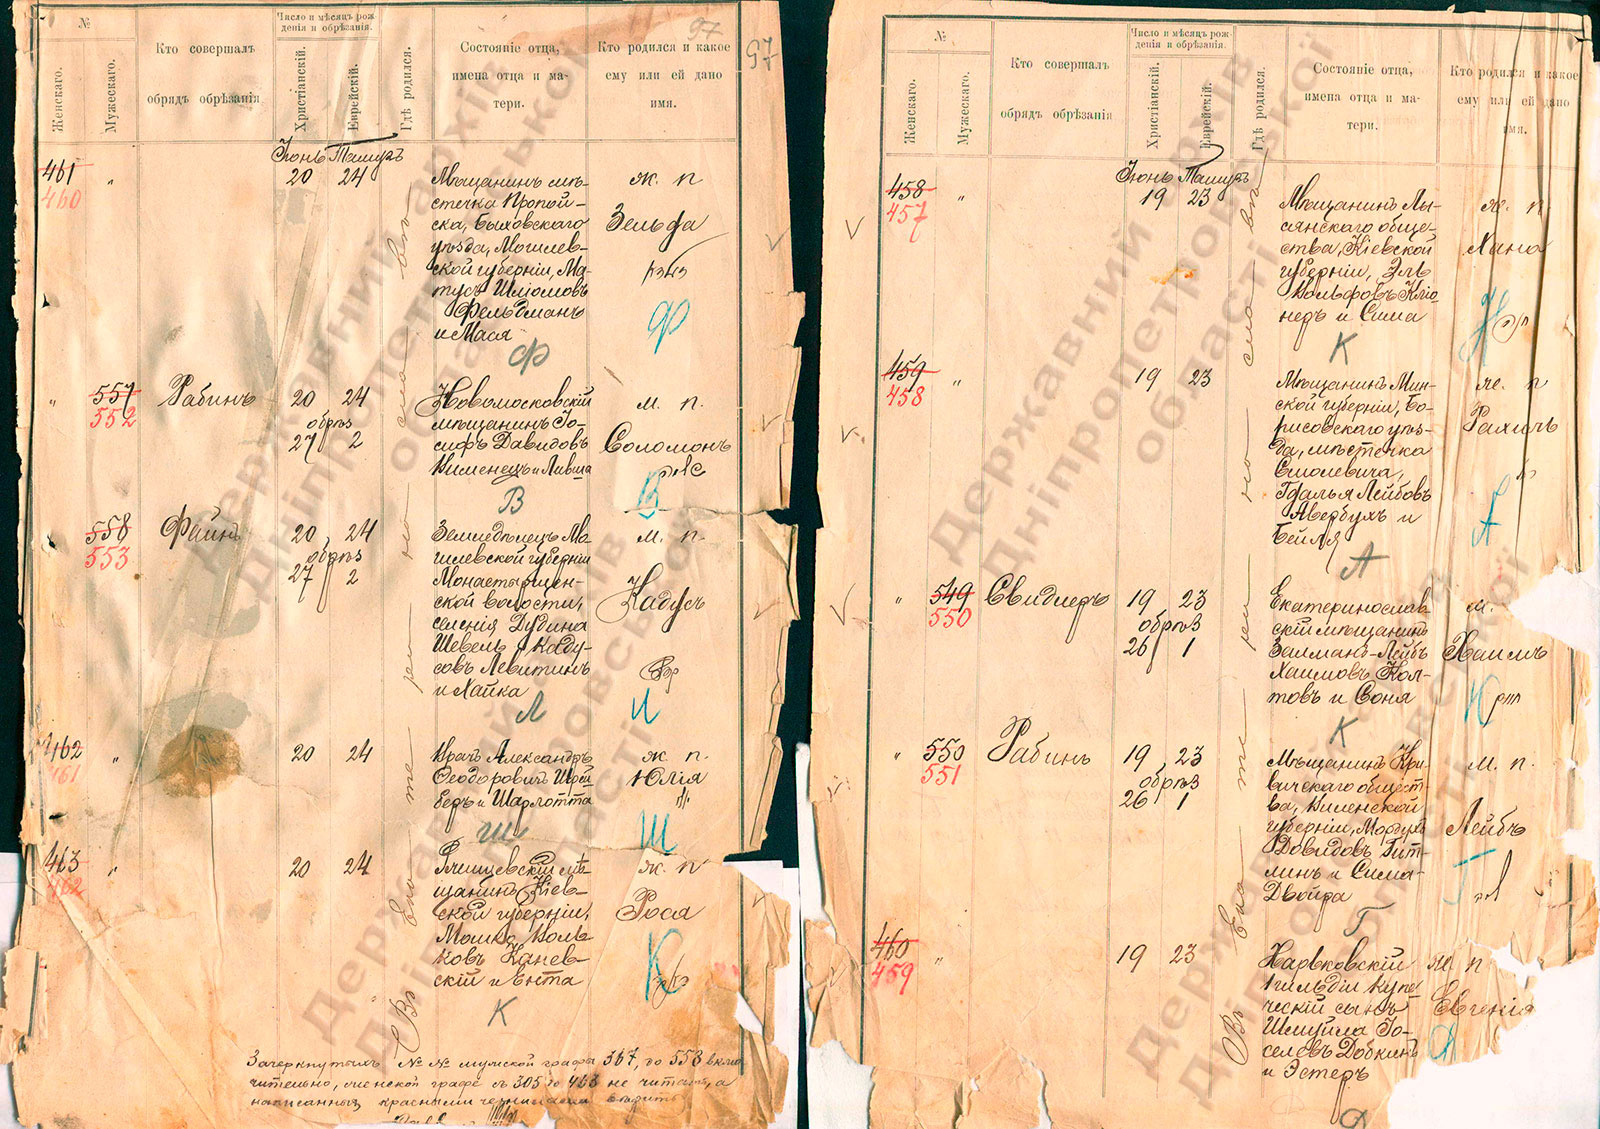 97
97
№
Женскаго.
Мужескаго.
Кто совершалъ
обрядъ обрѣзанія
Число и мѣсяцъ рож-
денія и обрѣзанія.
Христіанскій.
Еврейскій.
Гдѣ родился.
Состояніе отца,
имена отца и ма-
тери.
Кто родился и какое
ему или ей дано
имя.
Іюнь Тамузъ
461
460
"
20 24
Мѣщанинъ мѣ-
стечка Пропой-
ска, Быховскаго
уѣзда, Могилев-
ской губерніи, Ма-
тусъ Шліомовъ
Фельдманъ
и Мася
Ф
ж. п
Зельфа
Ф
"
557
552
Рабинъ
20 24
обрѣз
27 2
Новомосковскій
мѣщанинъ Іо-
сифъ Давидовъ
Виленецъ и Ливша
В
м. п.
Соломонъ
В
558
553
Файнъ
20 24
обрѣз
27 2
Земледѣлецъ Мо-
гилевской губерніи
Монастырщен-
ской волости,
селенія Дубина
Шевель Каду-
совъ Левитинъ
и Хайка
Л
м. п.
Кадусъ
Л
462
461
"
20 24
Врачъ Александръ
Феодоровичъ Шрей
беръ и Шарлотта
Ш
ж. п
Юлія
Ш
463
462
"
20 24
Ржищевскій мѣ-
щанинъ Кіев-
ской губерніи,
Мошко Воль-
ковъ Канев-
скій и Ента
К
ж. п
Роса
К
Въ Ека те ри но сла вѣ
Зачеркнутыхъ №№ мужской графы 367, до 558 вклю
чительно, женской графѣ съ 305 до 463 не читать, а
написанныя красными чернилами вѣрить
№
Женскаго.
Мужескаго.
Кто совершалъ
обрядъ обрѣзанія
Число и мѣсяцъ рож-
денія и обрѣзанія.
Христіанскій.
Еврейскій.
Гдѣ родился.
Состояніе отца,
имена отца и ма-
тери.
Кто родился и какое
ему или ей дано
имя.
Іюнь Тамузъ
458
457
"
19 23
Мѣщанинъ Лы-
сянскаго обще-
ства, Кіевской
губерніи, Эль
Вольфовъ Кліо
неръ и Сима
К
ж. п
Хана
459
458
"
19 23
Мѣщанинъ Мин-
ской губерніи, Бо-
рисовскаго уѣз-
да, мѣстечка
Смолевича,
Гдалья Лейбовъ
Авербухъ и
Бейля
А
ж. п
Рахиль
А
"
549
550
Свидлеръ
19 23
обрѣз
26 1
Екатеринослав
скій мѣщанинъ
Залманъ-Лейбъ
Хаимовъ Кол-
товъ и Соня
К
м.
Хаимъ
К
"
550
551
Рабинъ
19 23
обрѣз
26 1
Мѣщанинъ Кри-
вичскаго общест-
ва, Виленской
губерніи, Мордухъ
Довидовъ Гит-
линъ и Сима-
Двойра
Г
м. п.
Лейбъ
Г
460
459
"
19 23
Харьковскій
гильдіи купе
ческій сынъ
Шмуйла Іо-
селевъ Добкинъ
и Эстеръ
Д
ж. п
Евгенія
Д
Въ Ека те ри но сла вѣ
Державний архів
Дніпропетровської
області
Державний архів
Дніпропетровської
області
Державний архів
Дніпропетровської
області
Державний архів
Дніпропетровської
області